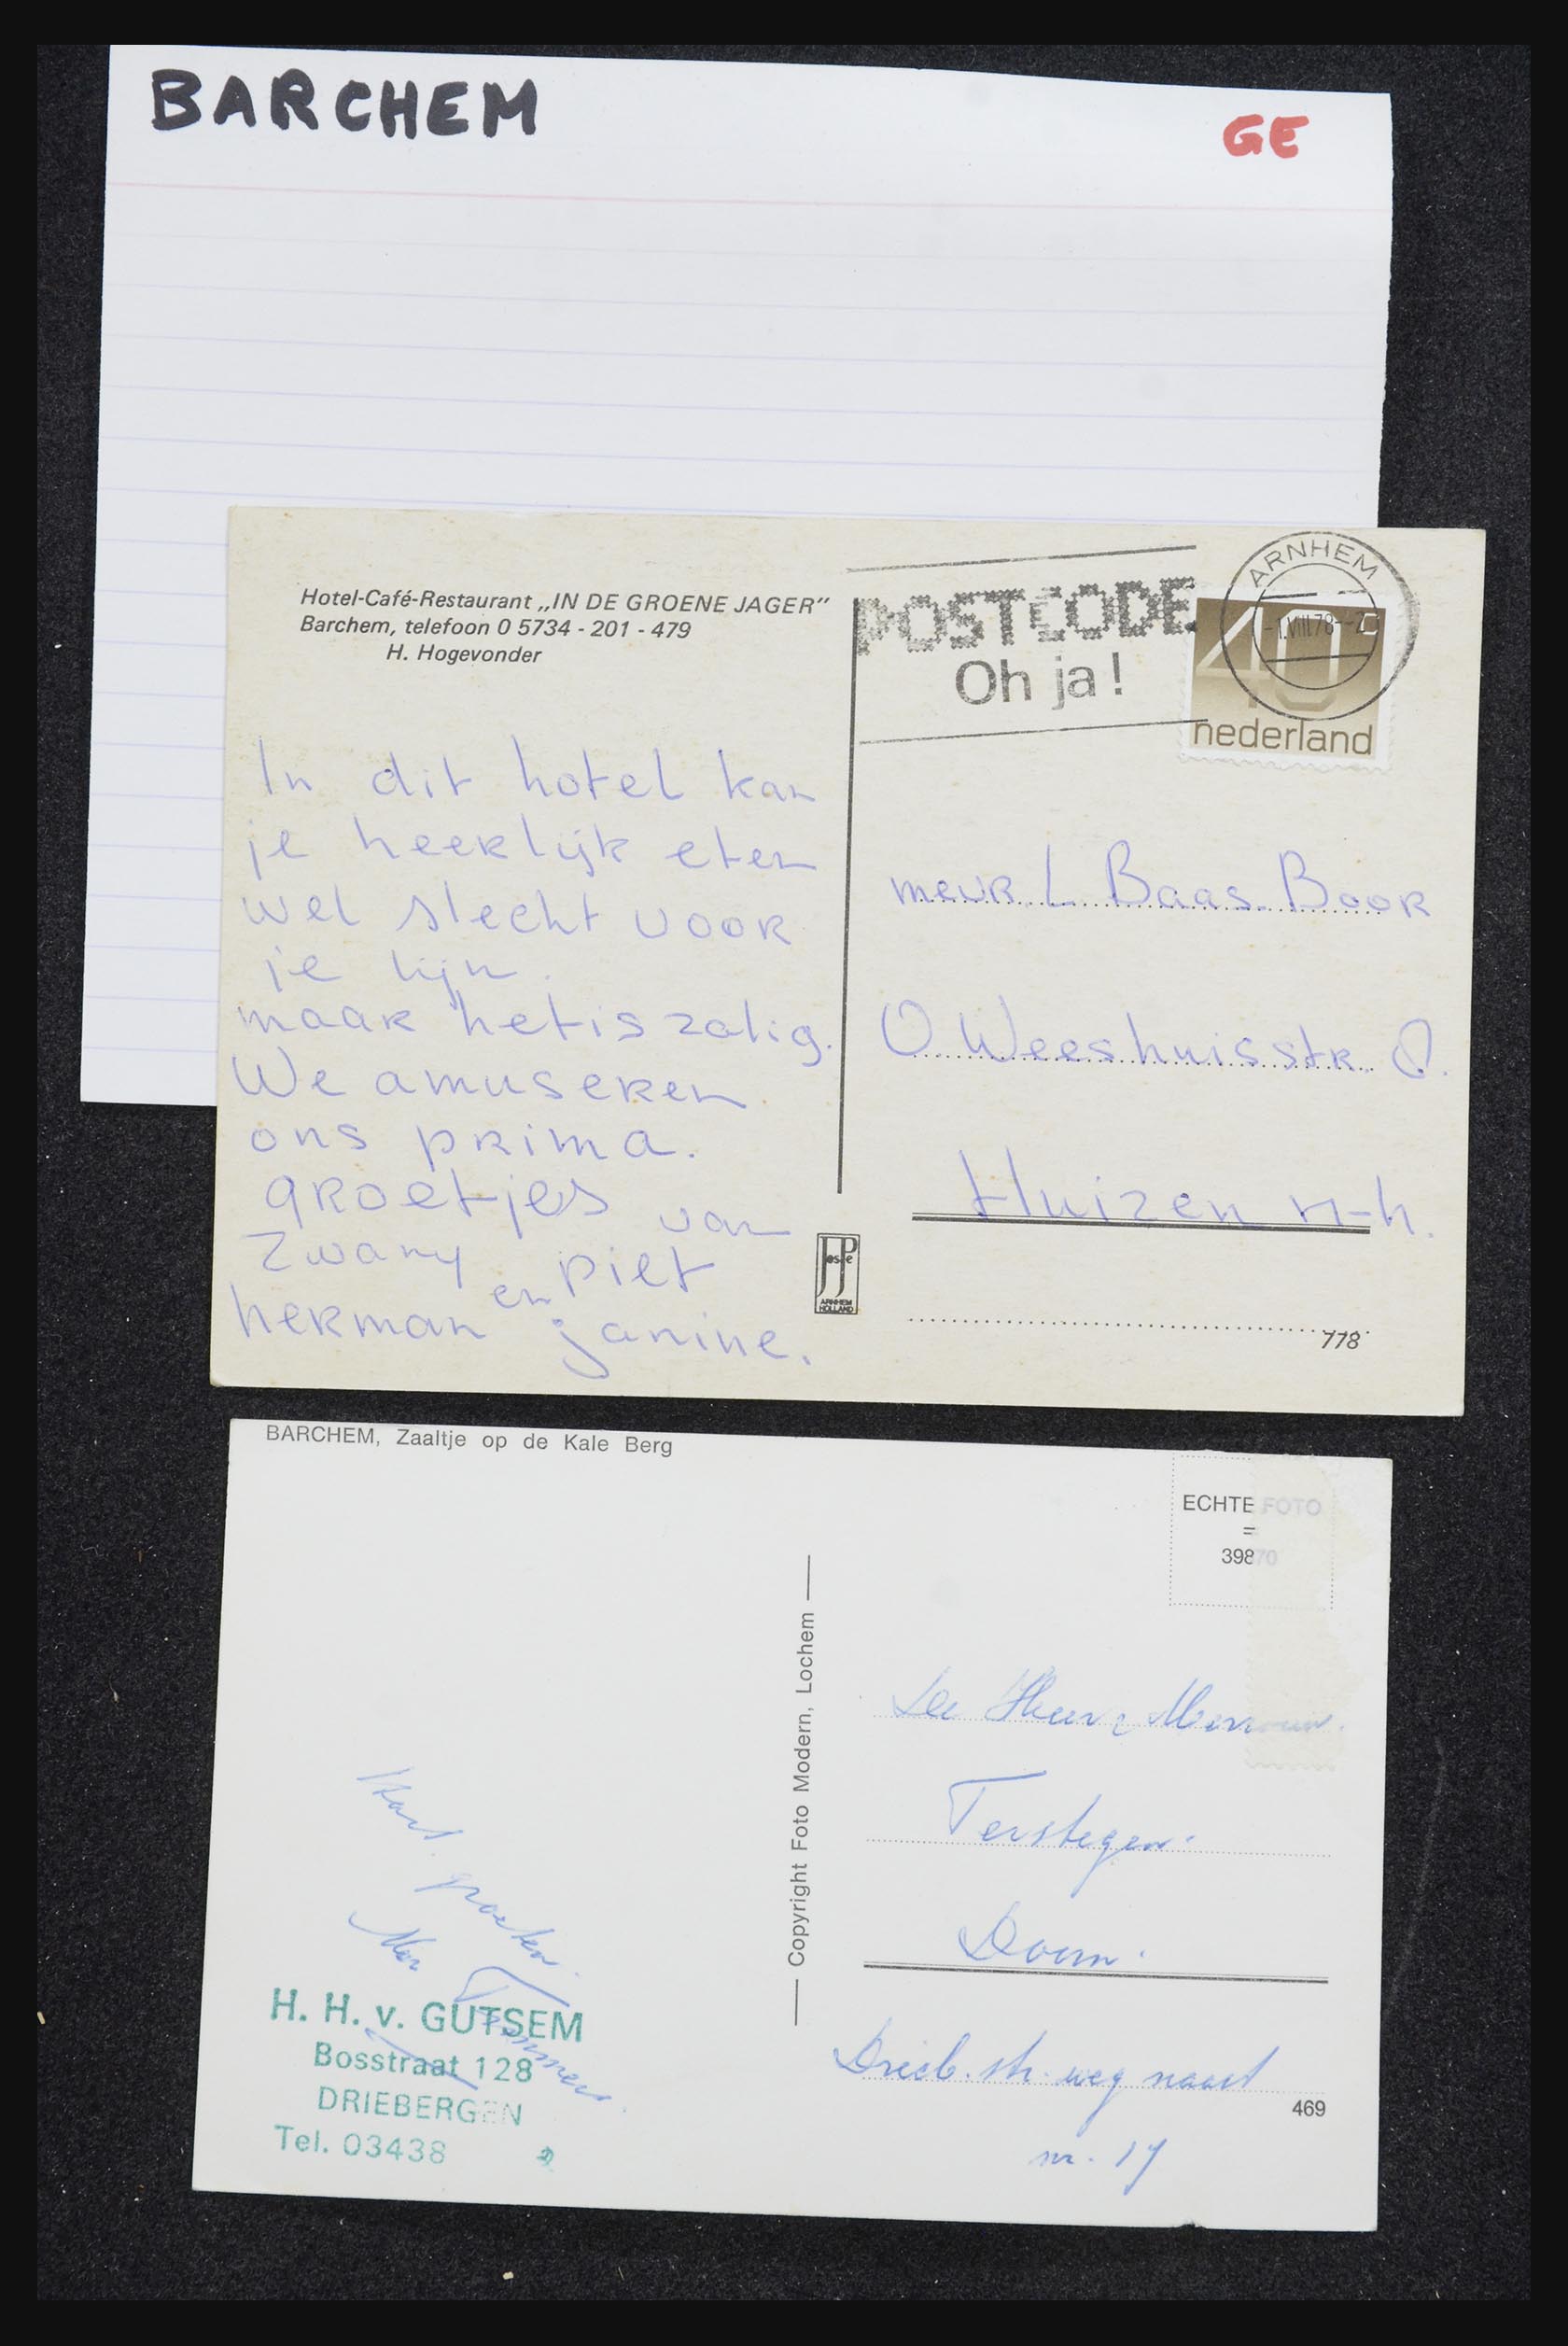 BARCHEM
GE
Hotel-Café-Restaurant „IN DE GROENE JAGER”
Barchem, telefoon 0 5734 - 201 - 479
H. Hogevonder
In dit hotel kan
je heerlijk eten
wel slecht voor
je lijn.
maar het is zalig.
We amuseren
ons prima.
groetjes van
Zwany piet
herman en janine.
POSTCODE
Oh ja!
ARNHEM
-1.VIII.78
40
nederland
mevr. L Baas. Boor
O Weeshuisstr.
Huizen n-h.
JosPe
ARNHEM
HOLLAND
778
BARCHEM, Zaaltje op de Kale Berg
ECHTE FOTO
=
39870
Copyright Foto Modern, Lochem
De Heer
Terstegen.
Doorn.
Drieb. str. weg naast
nr. 17
469
Hart. groeten.
H. H. v. GUTSEM
Bosstraat 128
DRIEBERGEN
Tel. 03438